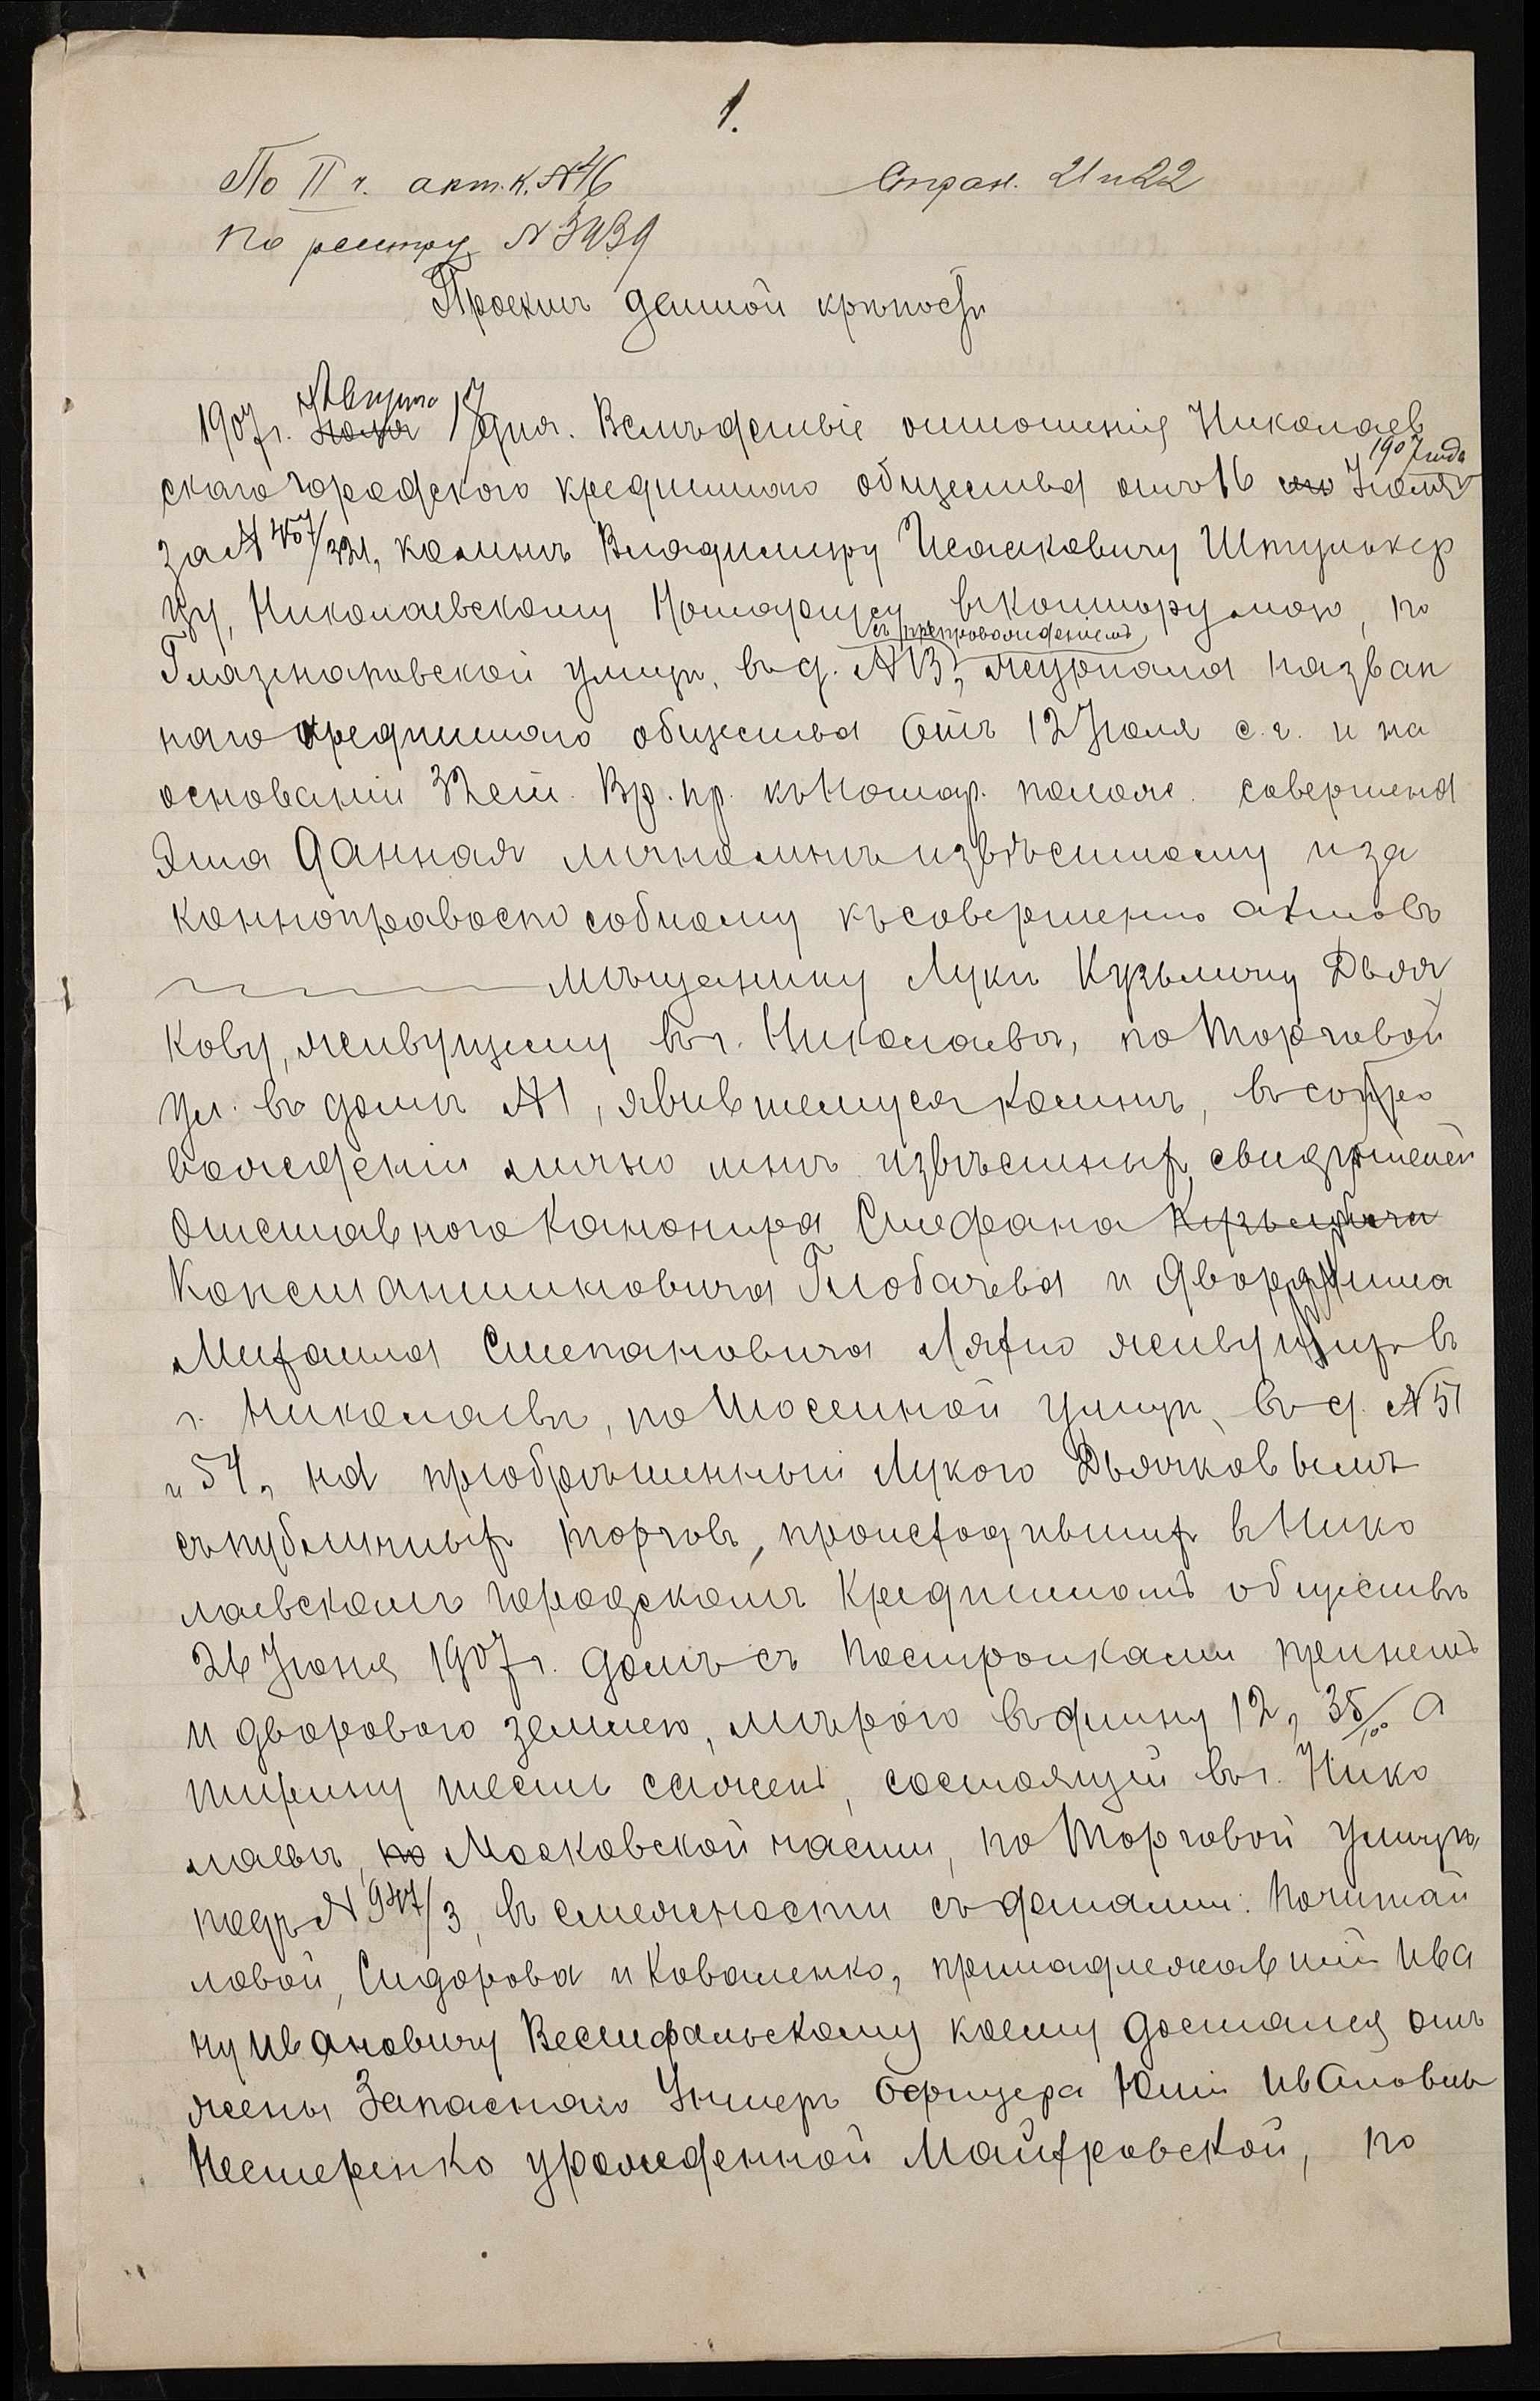 1.
По II ч. акт. к. №46
Стран. 21 и 22
По реестру № 3939
Проектъ данной крѣпости
Августа
1907 г. Іюля 17 дня. Вслѣдствіе отношенія Николаев
1907 года
скаго городского кредитнаго общества отъ 16 Іюля
за № 407/321, ко мнѣ Владиміру Исааковичу Штулькер
цу, Николаевскому Нотаріусу въ контору мою, по
съ препровожденіемъ
Глазенаповской улицѣ, въ д. №13, журнала назван
наго кредитнаго общества отъ 12 Іюля с. г. и на
основаніи 32 ст. Вр. пр. къ Нотар. полож. совершена
эта данная лично мнѣ извѣстному и за
конноправоспособному къ совершенію актовъ
мѣщанину Лукѣ Кузьмичу Дьяч
кову, живущему въ г. Николаевѣ, по Торговой
ул. въ домѣ №1, явившемуся ко мнѣ, въ сопро
вожденіи лично мнѣ извѣстныхъ свидѣтелей
Отставного Канонира Стефана Кузьмича
Константиновича Глобачева и дворянина
Михаила Степановича Ляхно живущихъ въ
г. Николаевѣ, по Шосейной улицѣ, въ д. №51
и 54, на пріобрѣтенный Лукою Дьячковымъ
съ публичныхъ торговъ, происходившихъ въ Нико
лаевскомъ городскомъ Кредитномъ обществѣ
26 Іюня 1907 г. домъ съ постройками при немъ
и дворовою землею, мѣрою въ длину 12, 35/100 а
ширину шесть сажень, состоящій въ г. Нико
лаевѣ, по Московской части, по Торговой улицѣ,
подъ № 947/3, въ смежности съ домами: Почитай
ловой, Сидорова и Коваленко, принадлежавшій Ива
ну Ивановичу Вестфальскому коему достался отъ
жены Запаснаго Унтеръ Офицера Юліи Ивановны
Нестеренко урожденной Майхровской, по